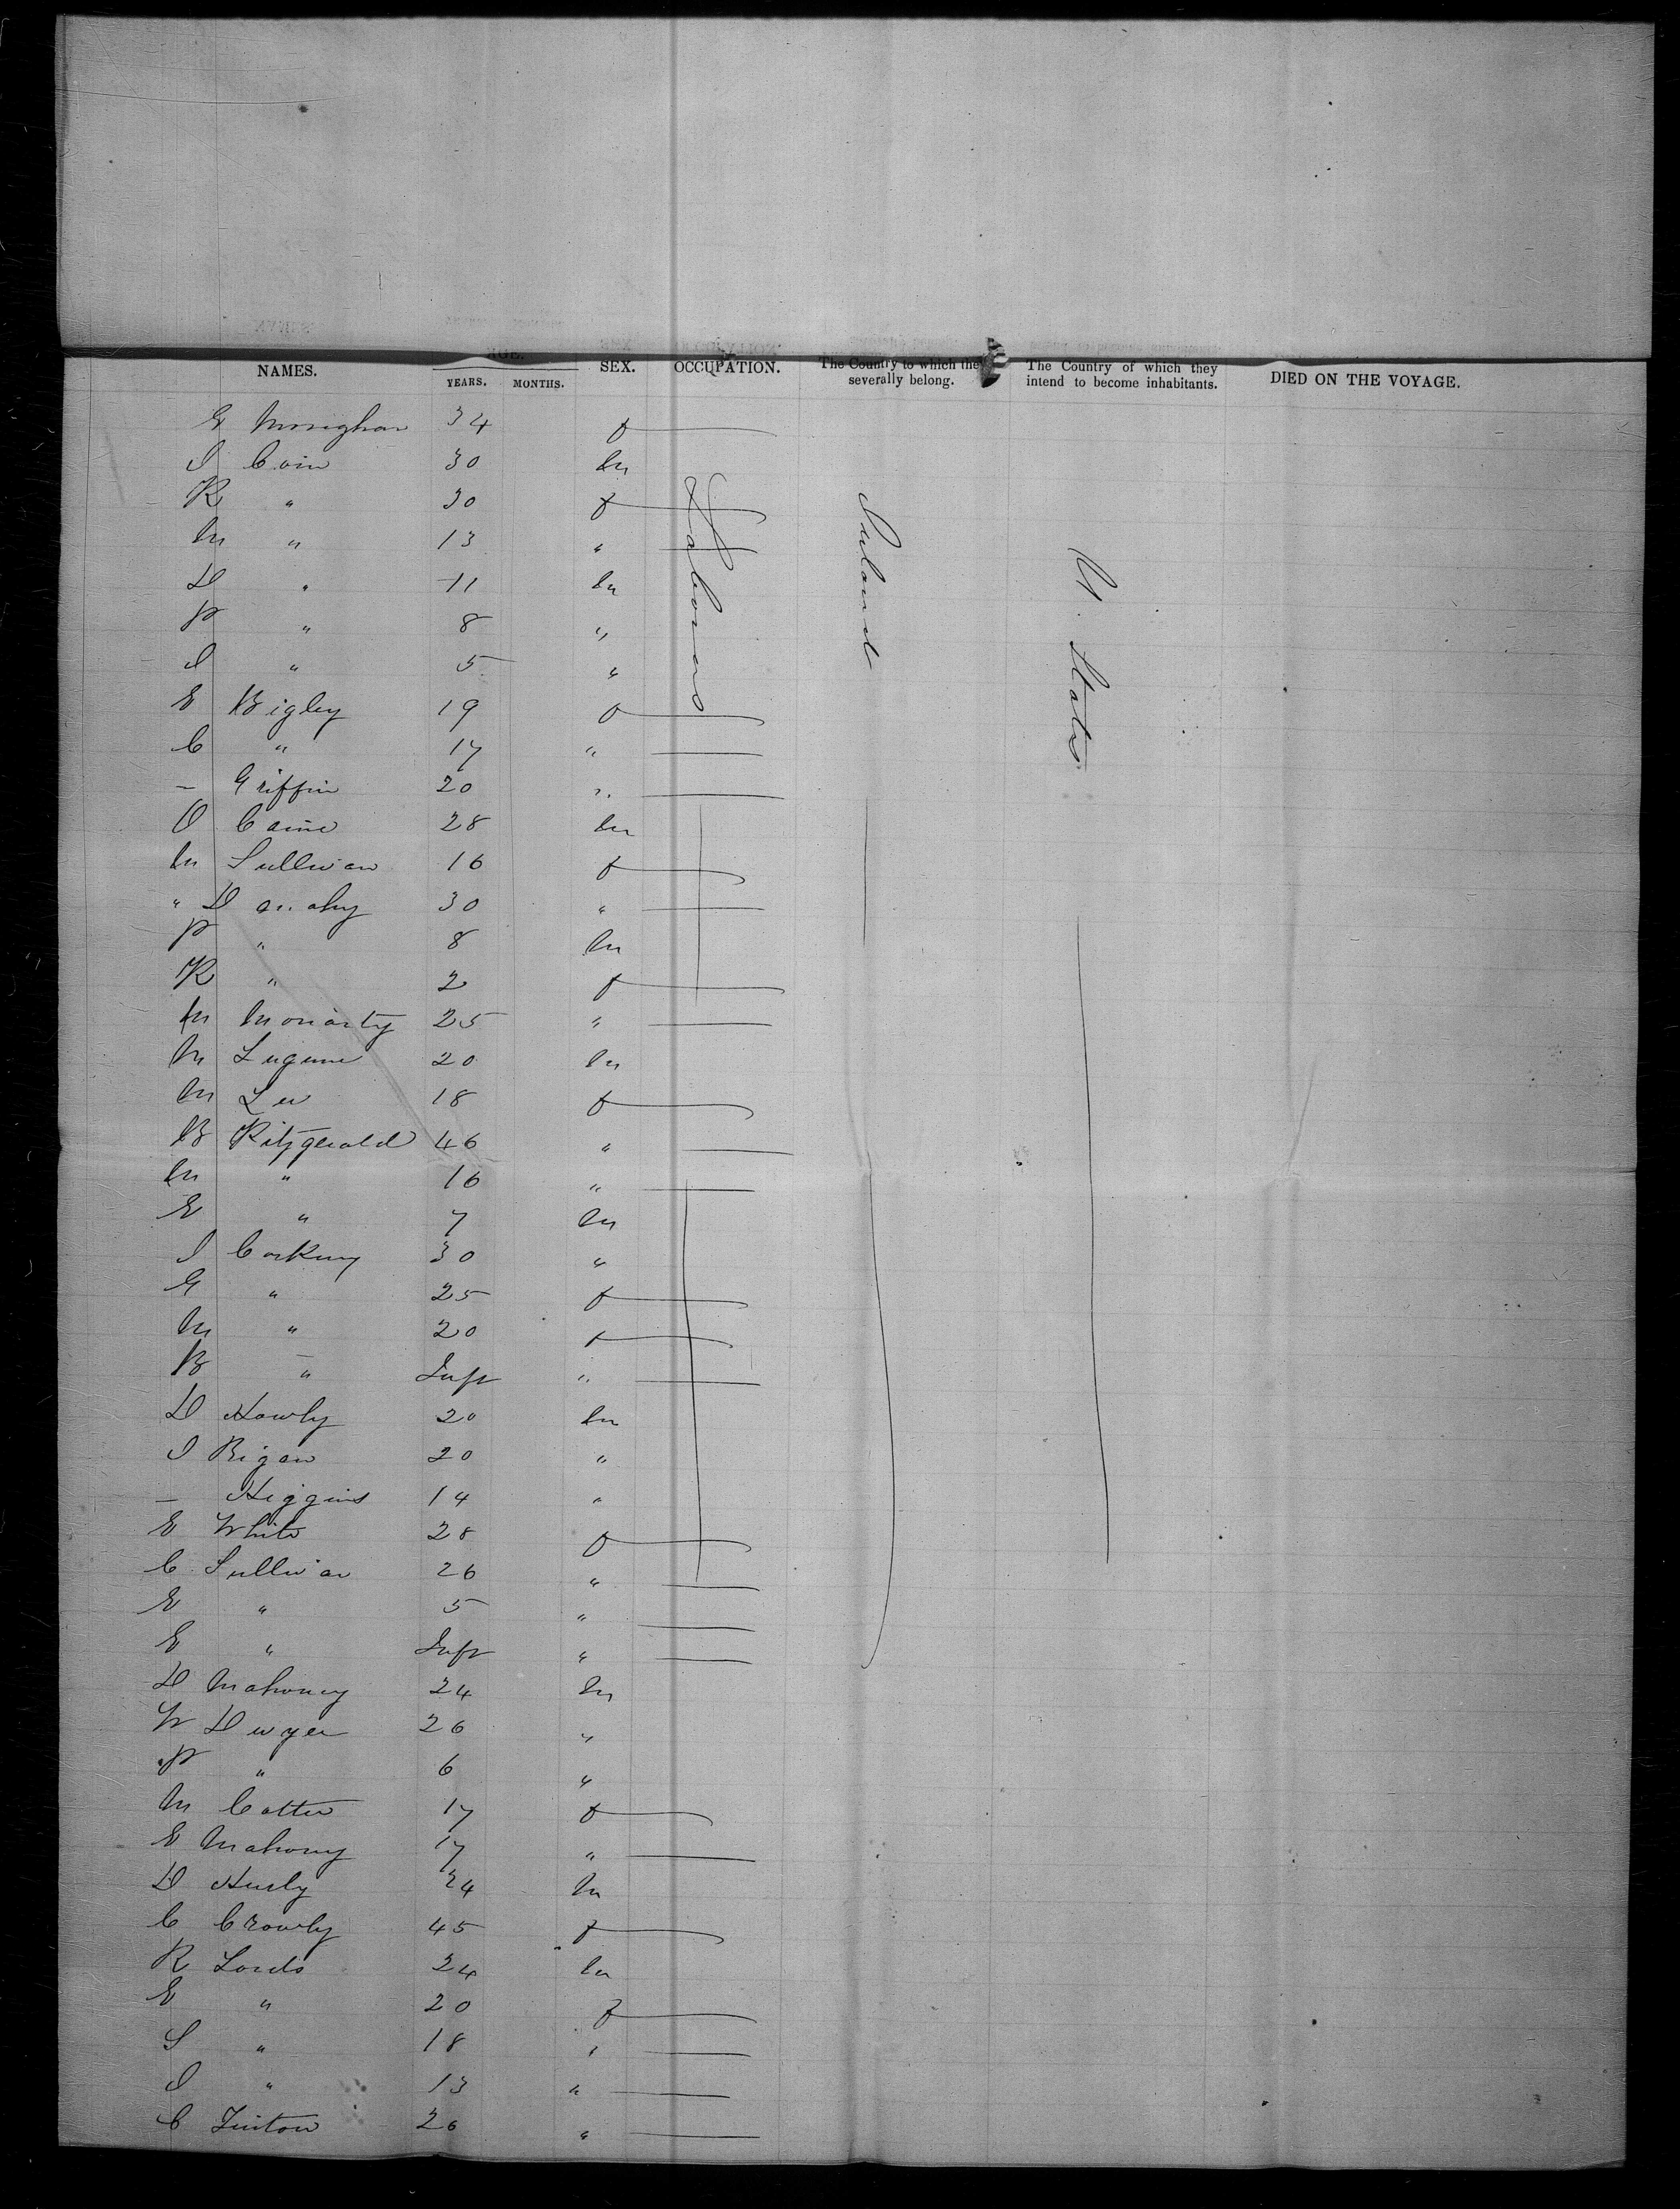 NAMES. AGE. SEX. OCCUPATION. The Country to which they severally belong. The Country of which they intend to become inhabitants. DIED ON THE VOYAGE.
YEARS. MONTHS.
G Monighan 34 f
I Coin 30 m Labourers Ireland U. States
K " 30 f
M " 13 "
D " 11 m
P " 8 "
I " 5 "
E Bigley 19 f
C " 17 "
— Griffin 20 "
O Caine 28 m
M Sullivan 16 f
" Danahy 30 "
P " 8 m
K " 2 f
M Moriarty 25 "
M Lugune 20 m
M Lee 18 f
B Fitzgerald 46 "
M " 16 "
E " 7 m
I Corkery 30 "
G " 25 f
M " 20 f
B " Inft "
D Howly 20 m
I Rigan 20 "
— Higgins 14 "
E White 28 f
C Sullivan 26 "
E " 5 "
E " Inft "
D Mahoney 24 m
W Dwyer 26 "
P " 6 "
M Cotter 17 f
E Mahony 17 "
D Hurly 24 m
C Crowly 45 f
R Lords 24 m
E " 20 f
S " 18 "
I " 13 "
C Finton 26 "